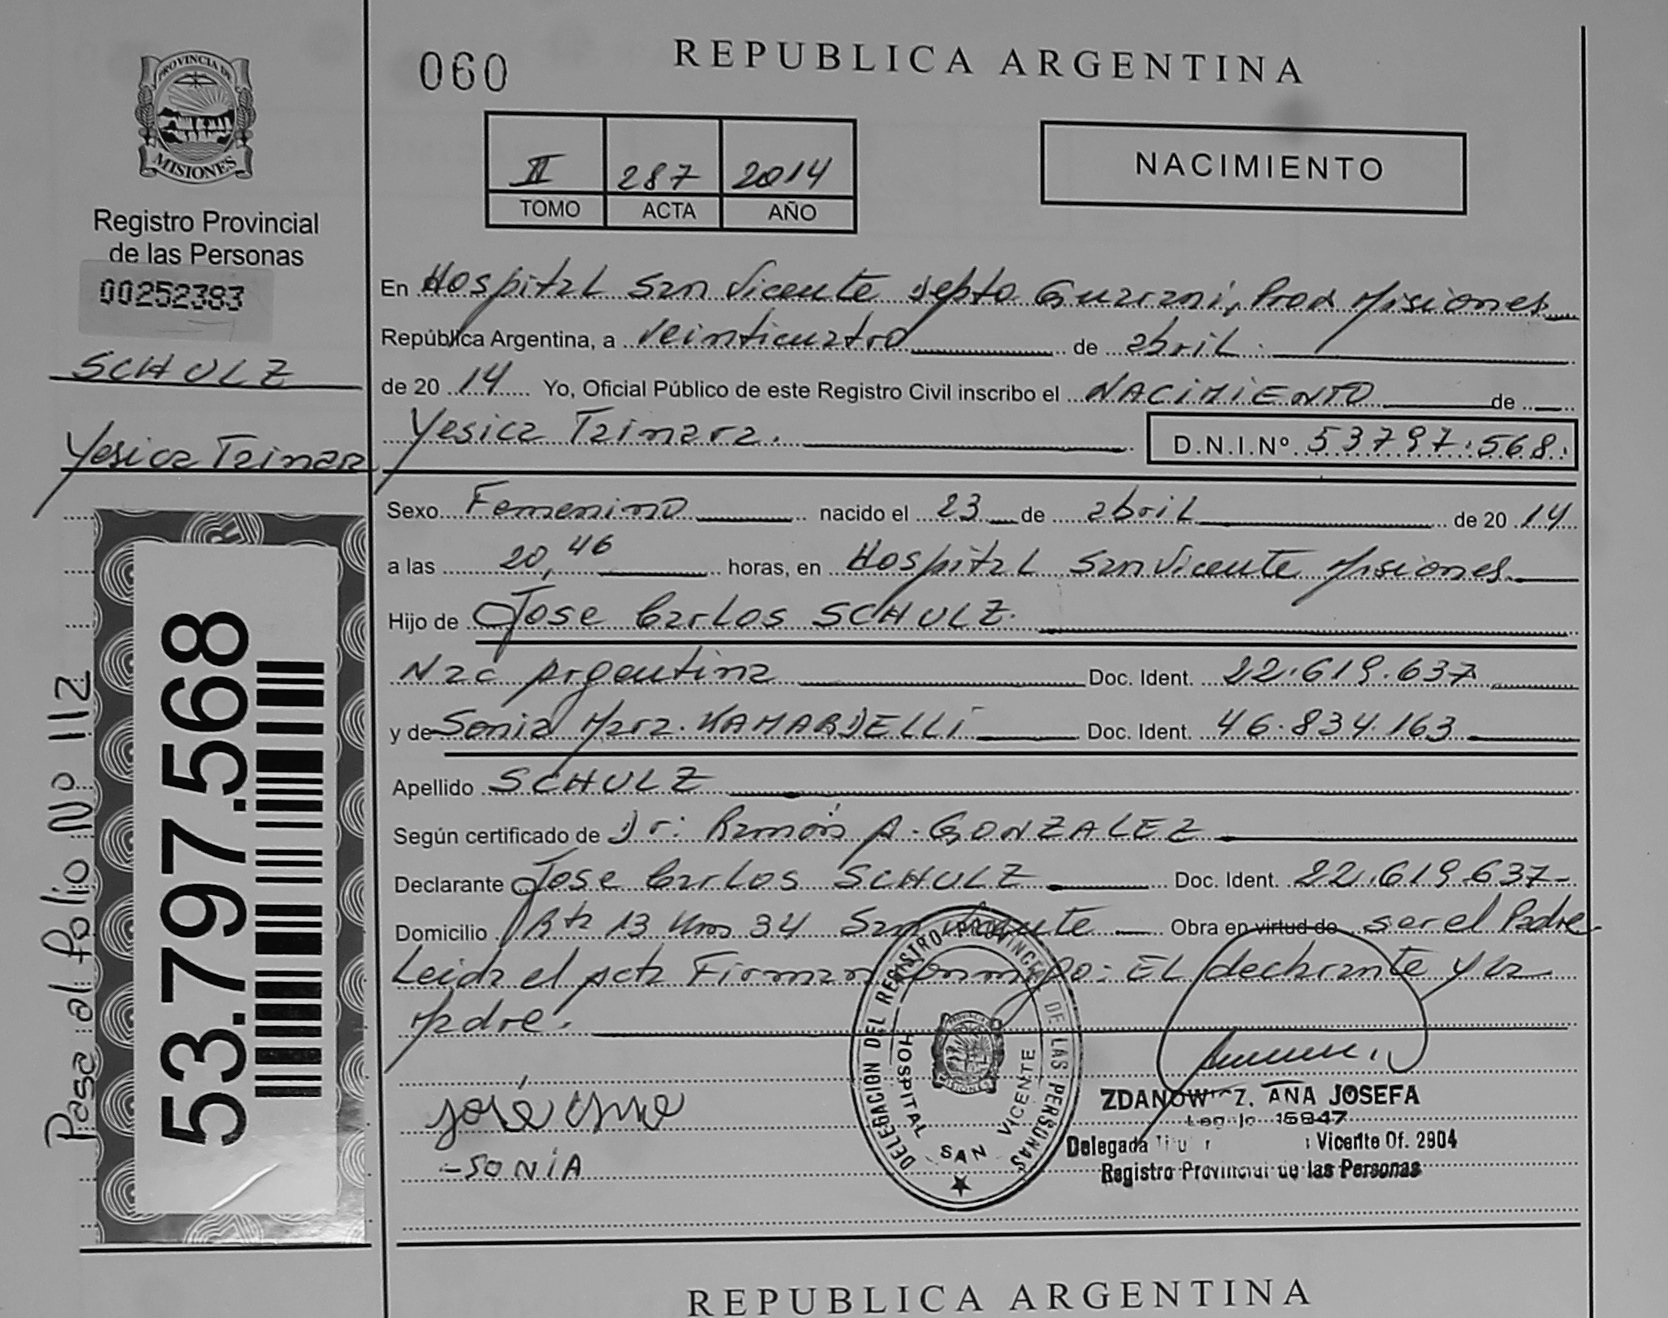 060
REPUBLICA ARGENTINA
PROVINCIA DE
MISIONES
Registro Provincial
de las Personas
00252383
SCHULZ
Yesica Tainara
Pasa al folio Nº 112
53.797.568
II 287 2014
TOMO ACTA AÑO
NACIMIENTO
En Hospital San Vicente Depto Guarani, Prov Misiones
República Argentina, a veinticuatro de abril
de 20 14 Yo, Oficial Público de este Registro Civil inscribo el NACIMIENTO de
Yesica Tainara. D.N.I.Nº 53797.568
Sexo Femenino nacido el 23 de abril de 20 14
a las 20,46 horas, en Hospital San Vicente Misiones
Hijo de Jose Carlos SCHULZ
Nac Argentina Doc. Ident. 22.619.637
y de Sonia Mara Doc. Ident. 46.834.163
Apellido SCHULZ
Según certificado de Dr: Ramón A. GONZALEZ
Declarante Jose Carlos SCHULZ Doc. Ident. 22.619.637
Domicilio Rta 13 Km 34 San Vicente Obra en virtud de ser el Padre
Leida el acta Firman EL declarante y la
Madre.
José
SONIA
DELEGACION DEL REGISTRO PROVINCIAL DE LAS PERSONAS
HOSPITAL SAN VICENTE
MISIONES
ANA JOSEFA
15847
Delegada Vicente Of. 2904
Registro Provincial de las Personas
REPUBLICA ARGENTINA